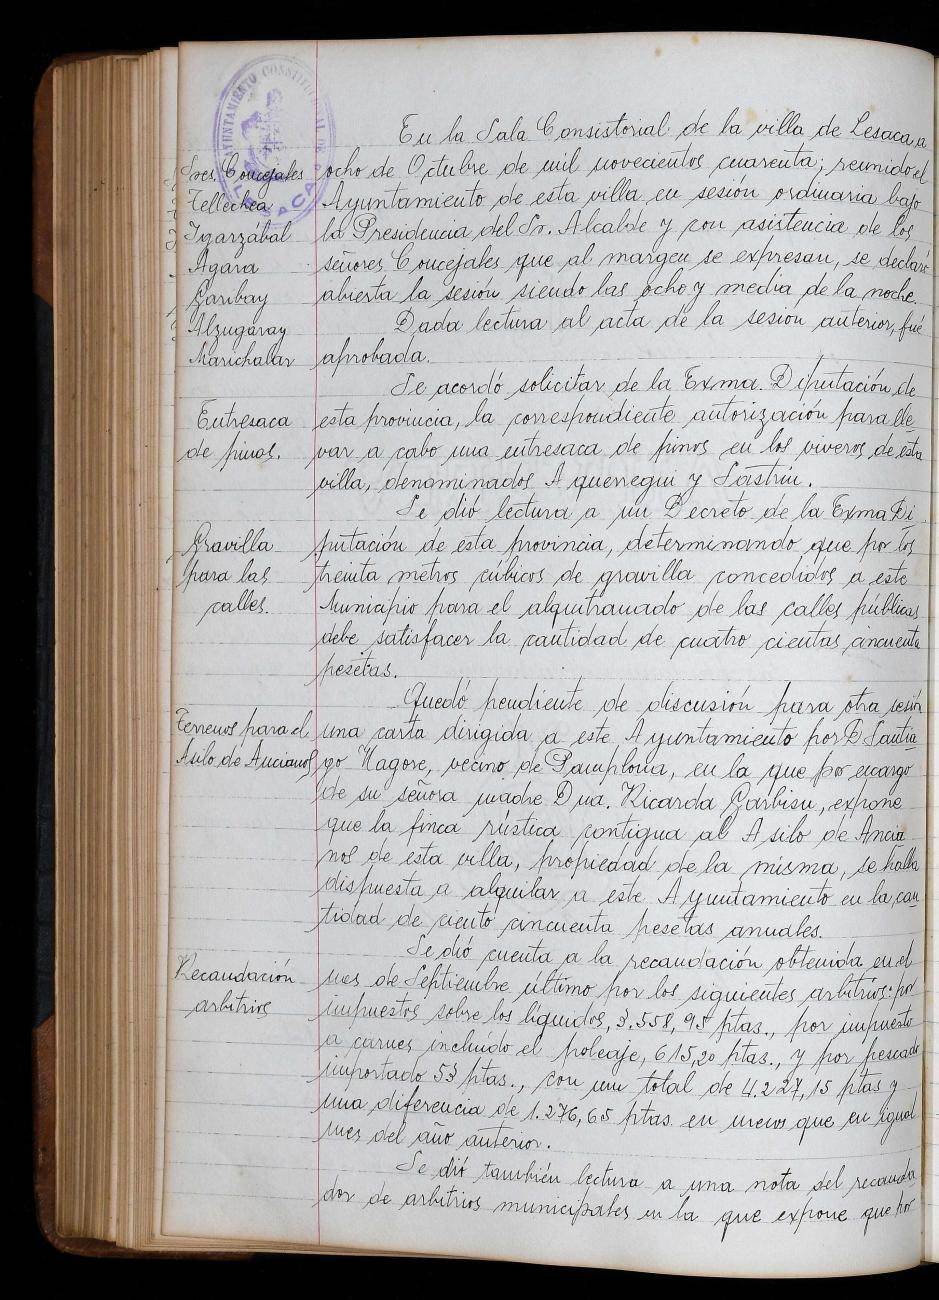 AYUNTAMIENTO CONSTITUCIONAL DE
LESACA
En la Sala Consistorial de la villa de Lesaca, a
ocho de Octubre de mil novecientos cuarenta; reunido el
Ayuntamiento de esta villa en sesión ordinaria bajo
la Presidencia del Sr. Alcalde y con asistencia de los
señores Concejales que al margen se expresan, se declaró
abierta la sesión siendo las ocho y media de la noche.
Sres. Concejales
Tellechea
Igarzábal
Agara
Garibay
Alzugaray
Marichalar
Dada lectura al acta de la sesión anterior, fué
aprobada.
Entresaca
de pinos.
Se acordó solicitar de la Exma. Diputación de
esta provincia, la correspondiente autorización para lle
var a cabo una entresaca de pinos en los viveros de esta
villa, denominados Aquerregui y Sastrin.
Gravilla
para las
calles.
Se dió lectura a un Decreto de la Exma Di
putación de esta provincia, determinando que por los
treinta metros cúbicos de gravilla concedidos a este
Municipio para el alquitranado de las calles públicas
debe satisfacer la cantidad de cuatro cientas cincuenta
pesetas.
Terrenos para el
Asilo de Ancianos
Quedó pendiente de discusión para otra sesión
una carta dirigida a este Ayuntamiento por D. Santia
go Nagore, vecino de Pamplona, en la que por encargo
de su señora madre Dña. Ricarda Garbisu, expone
que la finca rústica contigua al Asilo de Ancia
nos de esta villa, propiedad de la misma, se halla
dispuesta a alquilar a este Ayuntamiento en la can
tidad de ciento cincuenta pesetas anuales.
Recaudación
arbitrios
Se dió cuenta a la recaudación obtenida en el
mes de Septiembre último por los siguientes arbitrios: por
impuestos sobre los líquidos, 3.558,95 ptas., por impuesto
a carnes incluído el poleaje, 615,20 ptas., y por pescado
importado 53 ptas., con un total de 4.227,15 ptas y
una diferencia de 1.276,65 ptas. en menos que en igual
mes del año anterior.
Se dió también lectura a una nota del recauda
dor de arbitrios municipales en la que expone que por